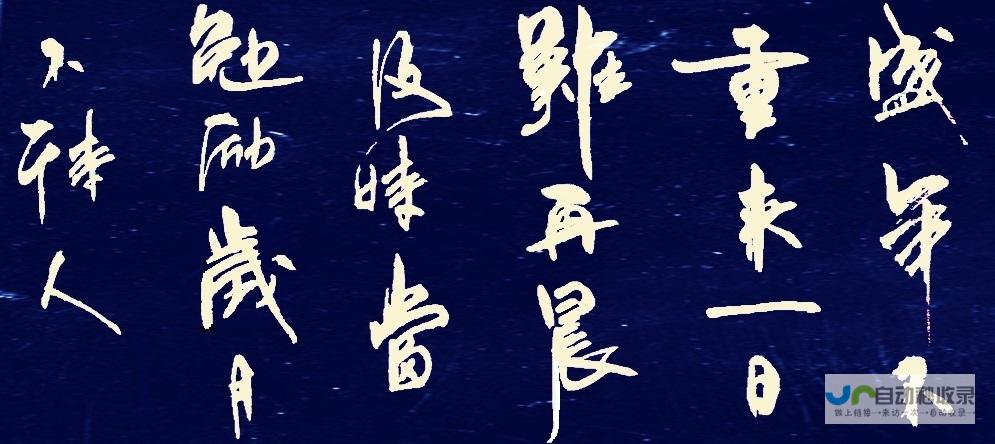 盛年不
重来一日
難再晨
及時當
勉励歲月
不待人
自动秒收录
做上链接→来访一次→自动收录